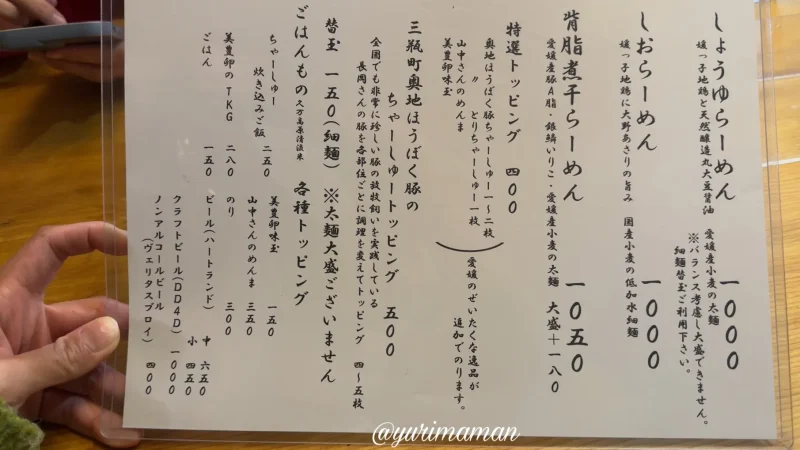 しょうゆらーめん 一〇〇〇
媛っ子地鶏と天然醸造丸大豆醤油 愛媛産小麦の太麺
※バランス考慮し大盛できません。
細麺替玉ご利用下さい。
しおらーめん 一〇〇〇
媛っ子地鶏に大野あさりの旨み 国産小麦の低加水細麺
背脂煮干らーめん 一〇五〇
愛媛産豚A脂・銀鱗いりこ・愛媛産小麦の太麺 大盛+一八〇
特選トッピング 四〇〇
奥地ほうぼく豚ちゃーしゅー一~二枚
〃 とりちゃーしゅー一枚
山中さんのめんま
美豊卵味玉
愛媛のぜいたくな逸品が
追加でのります。
三瓶町奥地ほうぼく豚の
ちゃーしゅートッピング 五〇〇
全国でも非常に珍しい豚の放牧飼いを実践している
長岡さんの豚を各部位ごとに調理を変えてトッピング 四~五枚
替玉 一五〇(細麺) ※太麺大盛ございません
ごはんもの 久万高原清流米
ちゃーしゅー
炊き込みご飯 二五〇
美豊卵のTKG 二八〇
ごはん 一五〇
各種トッピング
美豊卵味玉 一五〇
山中さんのめんま 三五〇
のり 三〇〇
ビール(ハートランド) 中 六五〇
小 四五〇
クラフトビール(DD4D) 一〇〇〇
ノンアルコールビール
(ヴェリタスブロイ) 四〇〇
@yurimaman